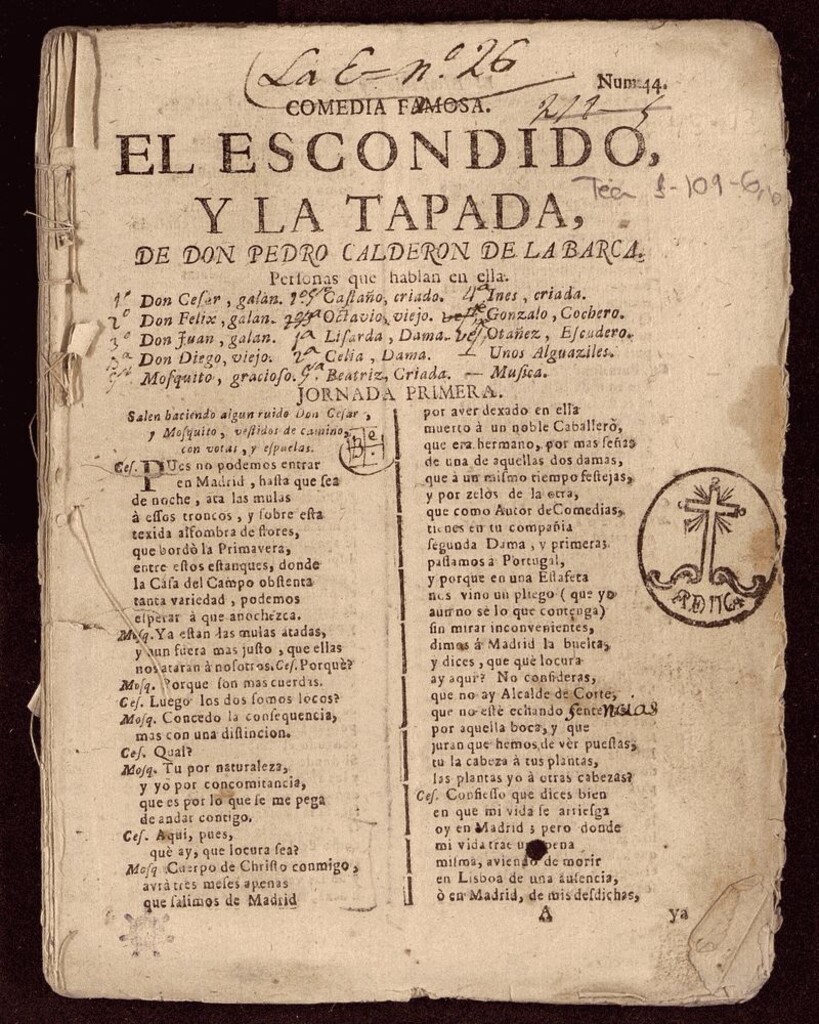 La E= nº 26
Num. 44.
COMEDIA FAMOSA.
EL ESCONDIDO,
Tea 1-109-6,
Y LA TAPADA,
DE DON PEDRO CALDERON DE LA BARCA.
Perſonas que hablan en ella.
1º Don Ceſar, galàn. Caſtaño, criado. 4ª Ines, criada.
2º Don Felix, galan. Octavio, viejo. Gonzalo, Cochero.
3º Don Juan, galan. 1ª Liſarda, Dama. Otañez, Eſcudero.
Don Diego, viejo. 2ª Celia, Dama. Unos Alguaziles.
Moſquito, gracioſo. Beatriz, Criada. — Muſica.
JORNADA PRIMERA.
Salen haciendo algun ruido Don Ceſar,
y Moſquito, veſtidos de camino,
con votas, y eſpuelas.
Ceſ. PUes no podemos entrar
en Madrid, haſta que ſea
de noche, ata las mulas
à eſſos troncos, y ſobre eſta
texida alfombra de flores,
que bordò la Primavera,
entre eſtos eſtanques, donde
la Caſa del Campo obſtenta
tanta variedad, podemos
eſperar à que anochezca.
Moſq. Ya eſtan las mulas atadas,
y aun fuera mas juſto, que ellas
nos ataran à noſotros. Ceſ. Porquè?
Moſq. Porque ſon mas cuerdas.
Ceſ. Luego los dos ſomos locos?
Moſq. Concedo la conſequencia,
mas con una diſtincion.
Ceſ. Qual?
Moſq. Tu por naturaleza,
y yo por concomitancia,
que es por lo que ſe me pega
de andar contigo.
Ceſ. Aqui, pues,
què ay, que locura ſea?
Moſq Cuerpo de Chriſto conmigo,
avrà tres meſes apenas
que ſalimos de Madrid
por aver dexado en ella
muerto à un noble Caballerò,
que era hermano, por mas ſeñas
de una de aquellas dos damas,
que à un miſmo tiempo feſtejas,
y por zelos de la otra,
que como Autor de Comedias,
tienes en tu compañia
ſegunda Dama, y primera;
paſſamos à Portugal,
y porque en una Eſtafeta
nos vino un pliego (que yo
aun no sè lo que contenga)
ſin mirar inconvenientes,
dimos à Madrid la buelta,
y dices, que què locura
ay aqui? No conſideras,
que no ay Alcalde de Corte,
que no eſtè echando ſentencias
por aquella boca, y que
juran que hemos de ver pueſtas,
tu la cabeza à tus plantas,
las plantas yo à otras cabezas?
Ceſ. Confieſſo que dices bien
en que mi vida ſe arrieſga
oy en Madrid; pero donde
mi vida trae una pena
miſma, aviendo de morir
en Lisboa de una auſencia,
ò en Madrid, de mis deſdichas,
A
ya